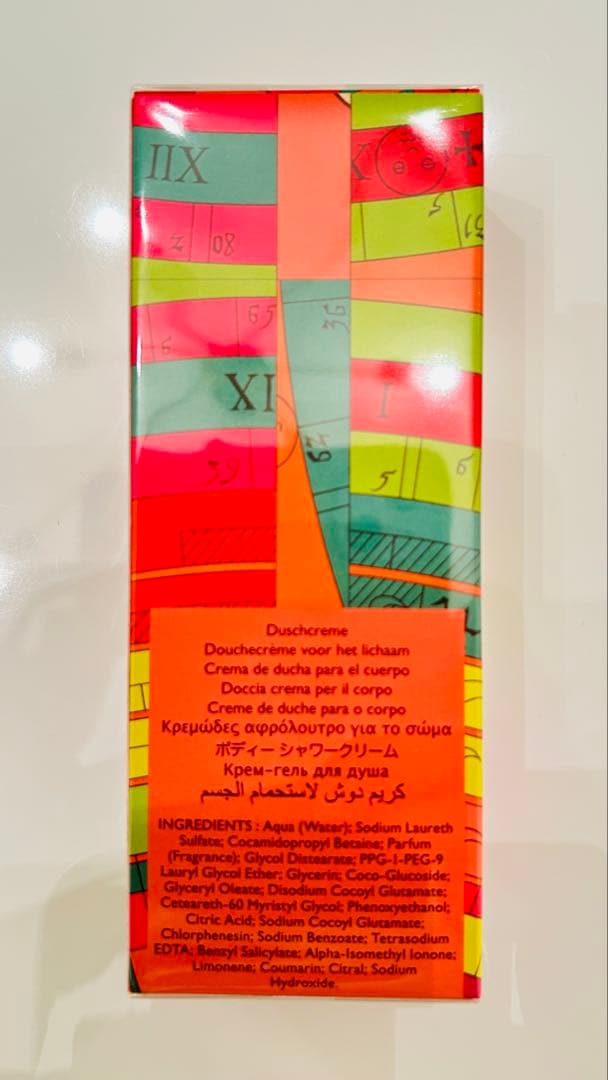 XII
X
2
80
5
31
65
36
6
XI
I
62
39
5
6
Duschcreme
Douchecrème voor het lichaam
Crema de ducha para el cuerpo
Doccia crema per il corpo
Creme de duche para o corpo
Κρεμώδες αφρόλουτρο για το σώμα
ボディー シャワークリーム
Крем-гель для душа
كريم دوش لاستحمام الجسم
INGREDIENTS : Aqua (Water); Sodium Laureth
Sulfate; Cocamidopropyl Betaine; Parfum
(Fragrance); Glycol Distearate; PPG-1-PEG-9
Lauryl Glycol Ether; Glycerin; Coco-Glucoside;
Glyceryl Oleate; Disodium Cocoyl Glutamate;
Ceteareth-60 Myristyl Glycol; Phenoxyethanol;
Citric Acid; Sodium Cocoyl Glutamate;
Chlorphenesin; Sodium Benzoate; Tetrasodium
EDTA; Benzyl Salicylate; Alpha-Isomethyl Ionone;
Limonene; Coumarin; Citral; Sodium
Hydroxide.